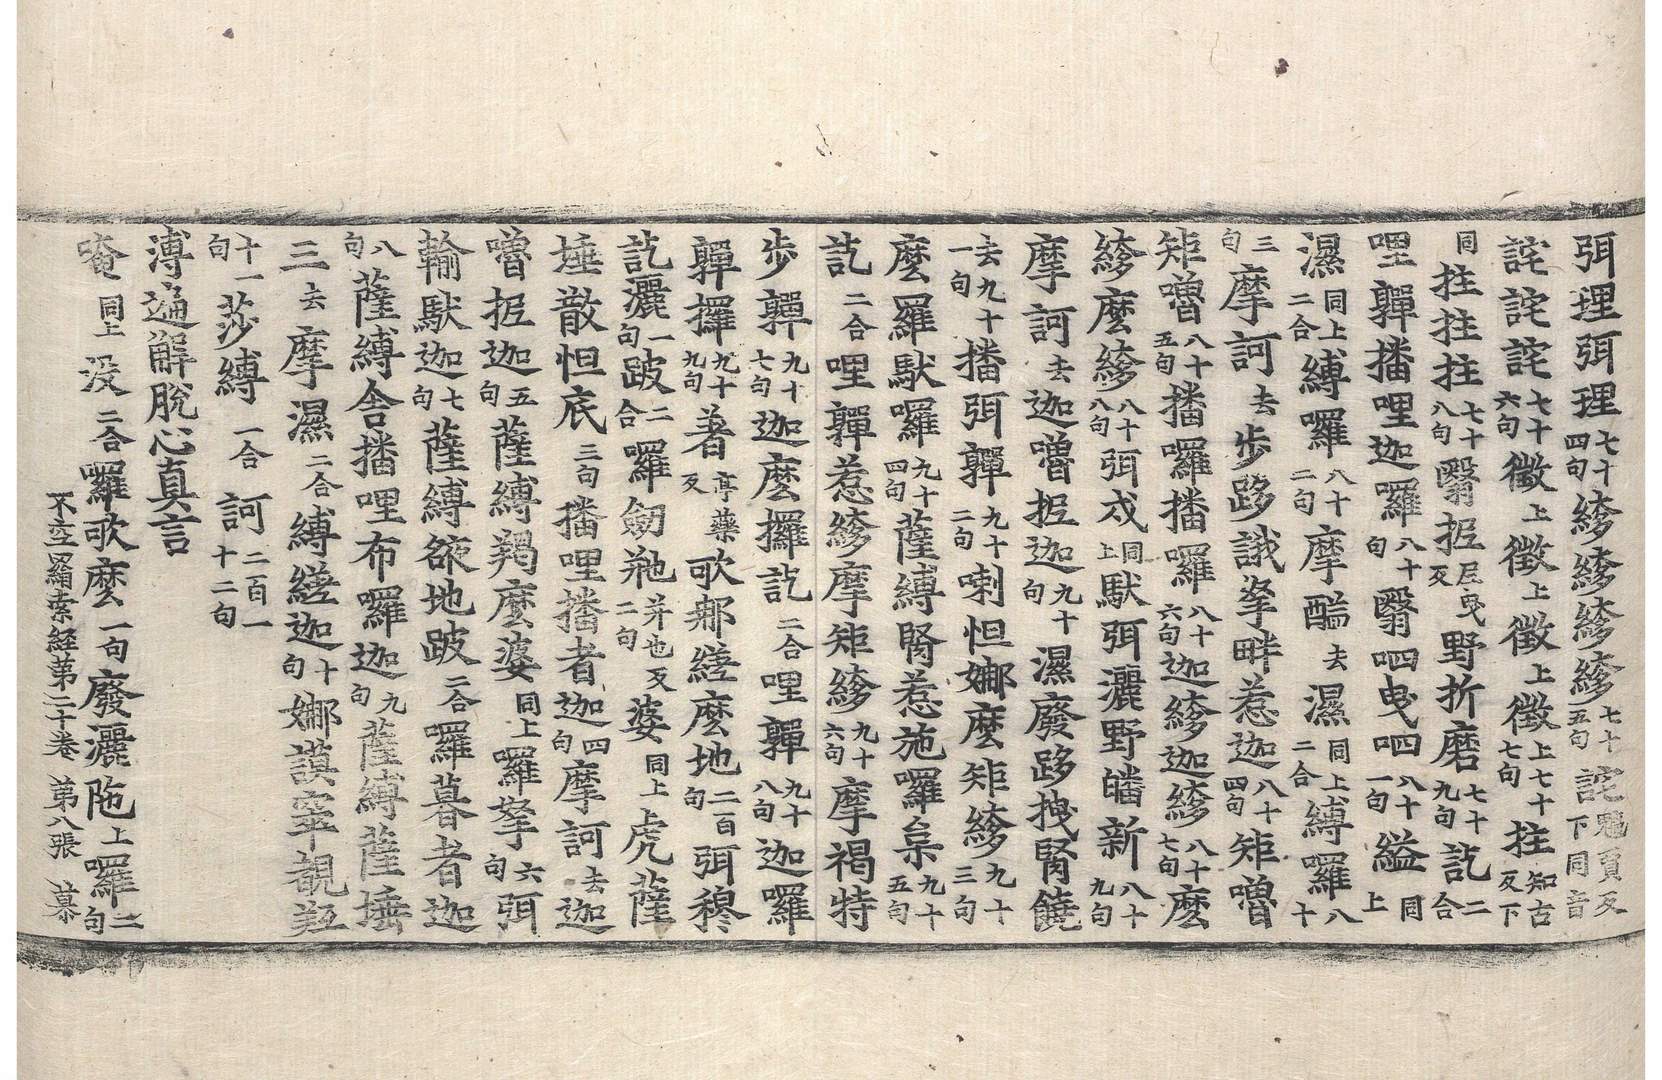 弭理弭理七十四句縿縿縿縿七十五句詫魑賈反下同音
詫詫詫七十六句徵上徵上徵上徵上七十七句拄知古反下
同拄拄拄七十八句翳抳尼曳反野折磨七十九句訖二合
哩軃播哩迦囉八十句翳呬曳呬八十一句縊同上
濕同上二合縛囉八十二句摩醯去濕同上二合縛囉八十
三句摩訶去步跢誐拏畔惹迦八十四句矩嚕
矩嚕八十五句播囉播囉八十六句迦縿迦縿八十七句麼
縿麼縿八十八句弭忒同上馱弭灑野皤新八十九句
摩訶去迦嚕抳迦九十句濕廢跢拽腎饒
去九十一句播弭軃九十二句喇怛娜麼矩縿九十三句
麼羅馱囉九十四句薩縛腎惹施囉枲九十五句
訖二合哩軃惹縿摩矩縿九十六句摩褐特
步軃九十七句迦麼攞訖二合哩軃九十八句迦囉
軃攞九十九句著亭藥反歌那縒麼地二百句弭穆
訖灑一句跛二合囉劒虵二句婆同上虎薩
埵散怛底三句播哩播者迦四句摩訶去迦
嚕抳迦五句薩縛羯麼婆同上囉拏六句弭
輸馱迦七句薩縛皴地跛二合囉暮者迦
八句薩縛舍播哩布囉迦九句薩縛薩埵
三去摩濕二合縛縒迦十句娜謨窣覩羝
十一句莎縛二合訶二百一十二句
溥遍解脫心真言
唵同上沒二合囉歌麼一句廢灑陁上囉二句
不空羂索經第二十卷 第八張 慕